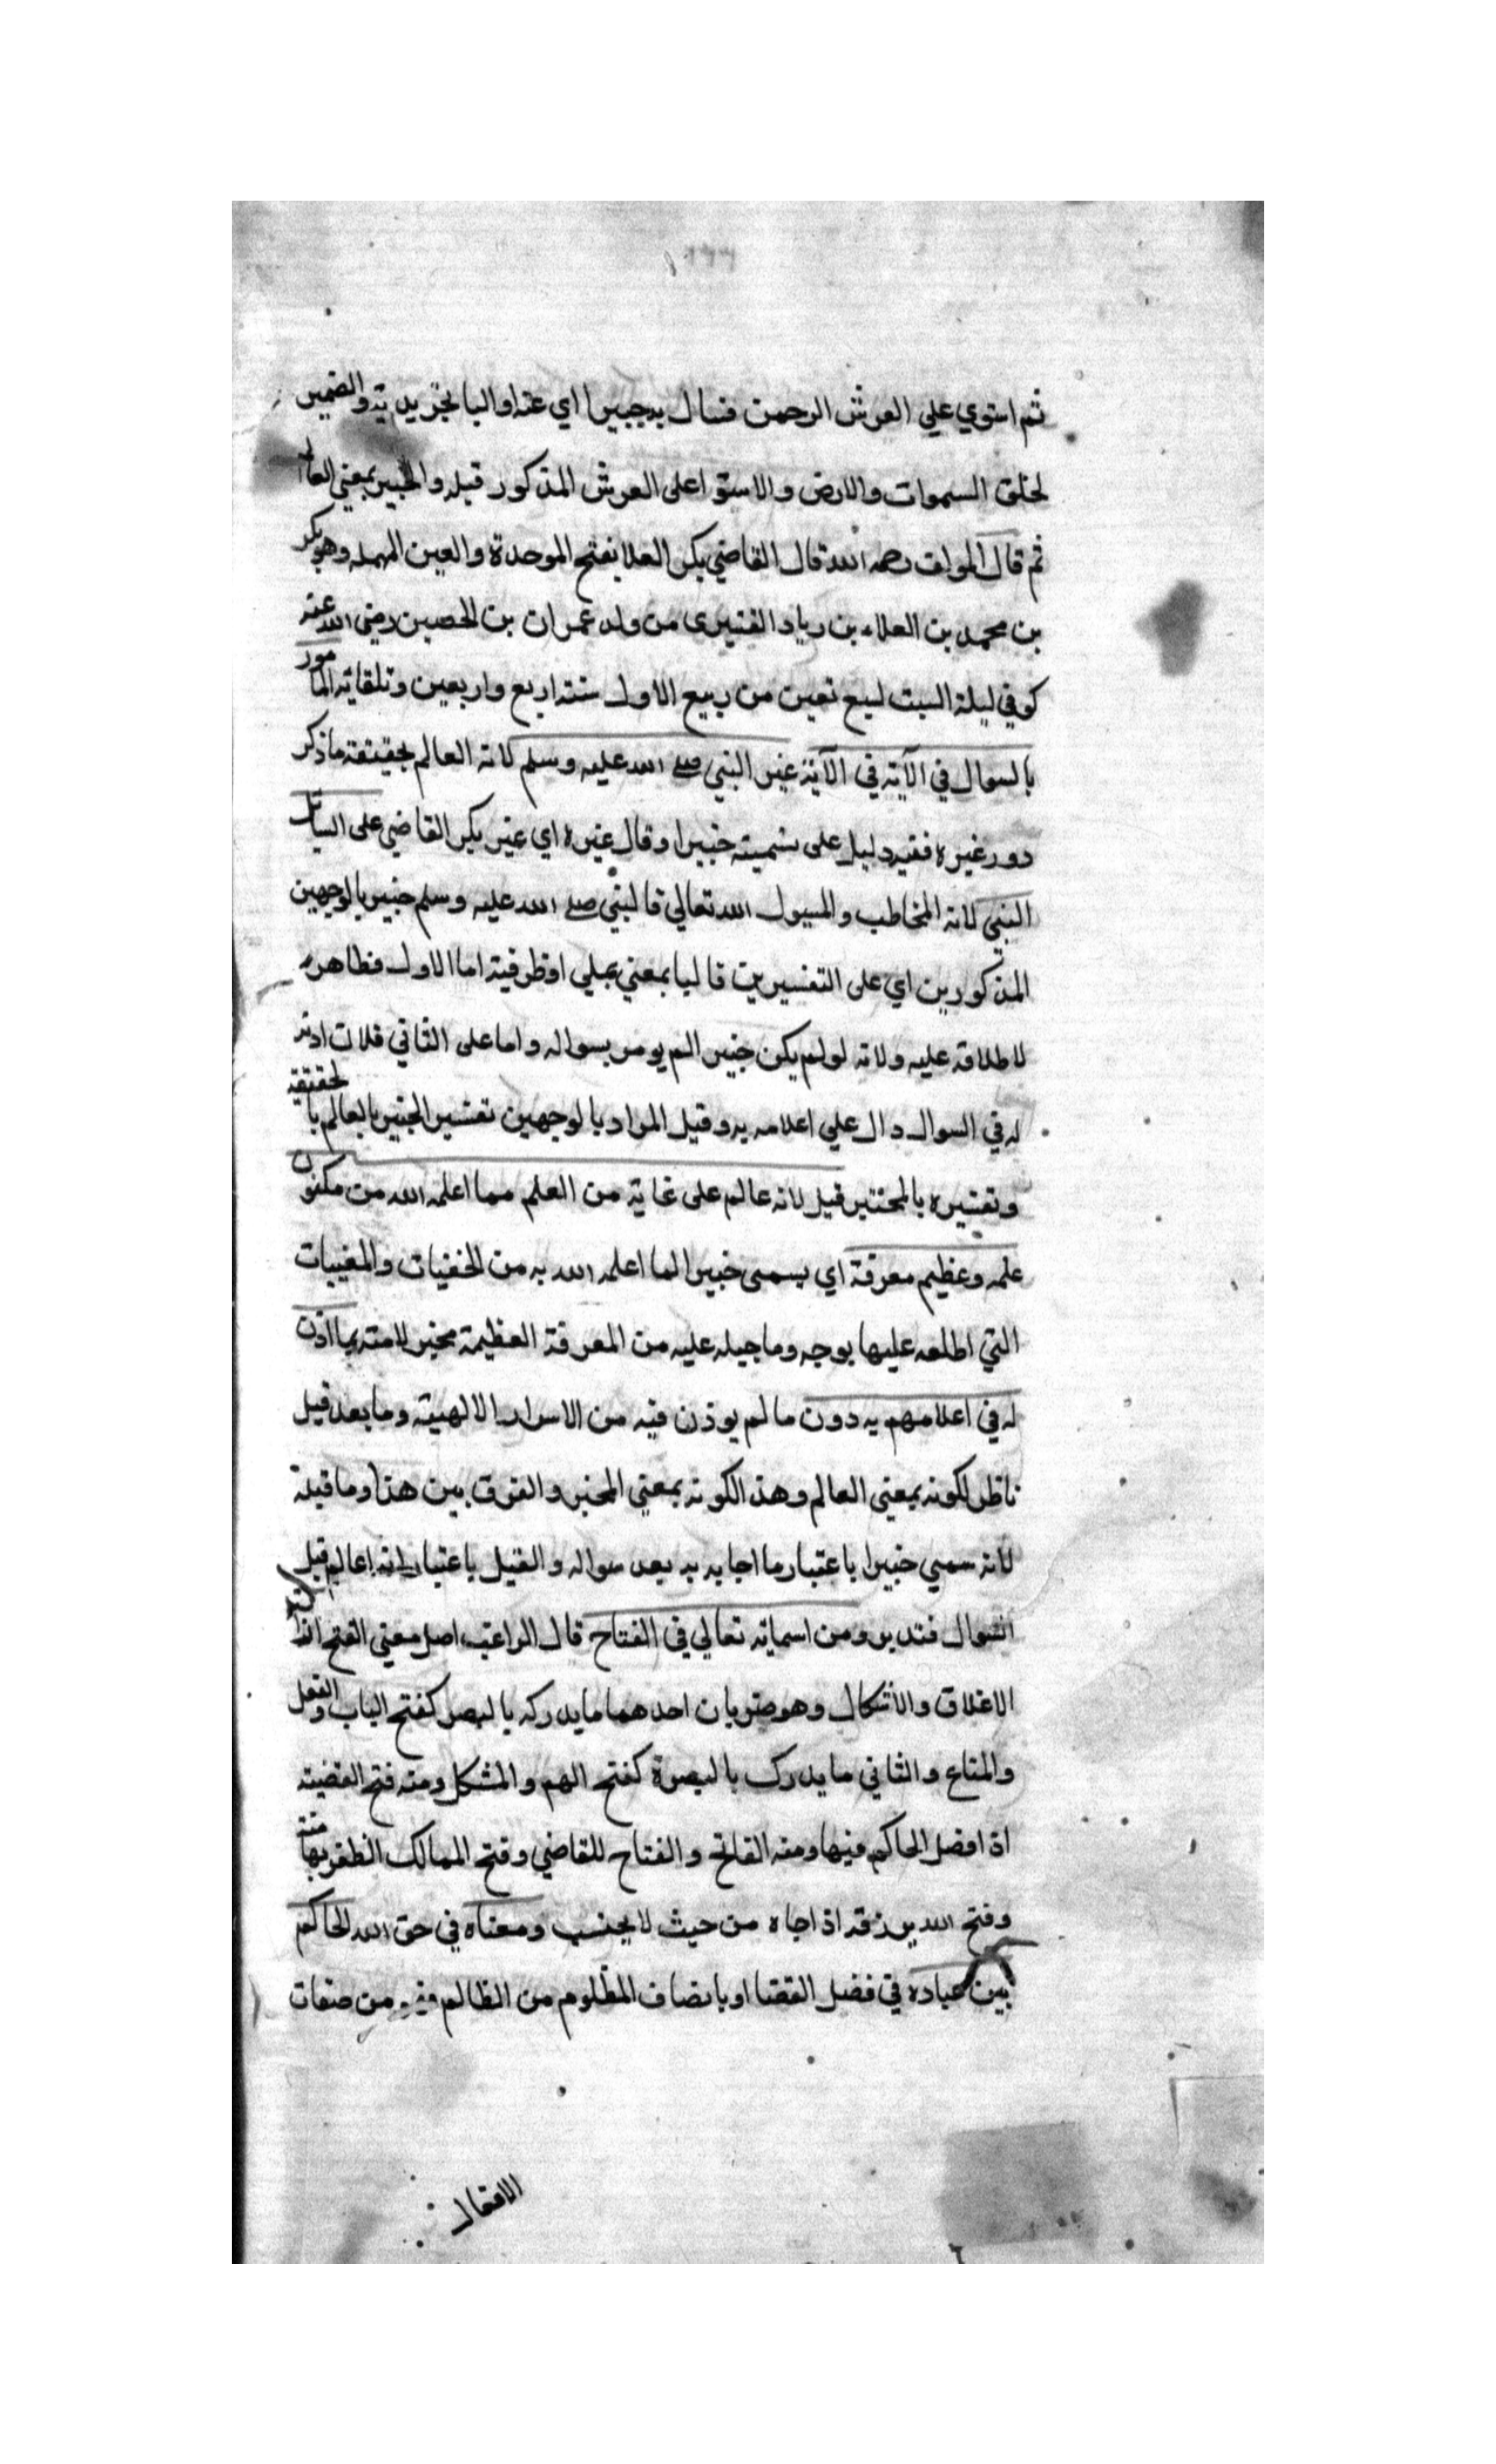 ثم استوي علي العرش الرحمن فسال به جبيرا اي عنه او البا تجريديه والضمير
لخلق السموات والارض والاستوا على العرش المذكور قبله والخبير بمعني العالم
ثم قال المولف رحمه الله قال القاضي بكر العلا بفتح الموحدة والعين المهمله وهو بكر
بن محمد بن العلاء بن رياد القشيرى من ولد عمران بن الحصين رضى الله عنه
كوفي ليلة السبت لسبع تعين من ربيع الاول سنته اربع واربعين وثلقاية المامور
بالسوال في الآية في الآية غير النبي صلى الله عليه وسلم لانه العالم بحقيقة ما ذكر
دور غيره ففيه دليل على تسميته خبيرا وقال غيره اي غير بكر القاضي على السايل
النبي لانه المخاطب والمسيول الله تعالي فالنبي صلى الله عليه وسلم خبير بالوجهين
المذكورين اي على التفسيرين فالبا بمعني او ظرفية اما الاول فظاهر
لاطلاقه عليه ولانه لو لم يكن خبير الم يومر بسواله واما على الثاني فلات اذنه
له في السوال دال علي اعلامه به وقيل المراد بالوجهين تفسير الخبير بالعالم بالحقيقة
وتفسيره بالمخبر قيل لانه عالم على غاية من العلم مما اعلمه الله من مكنون
علمه وعظيم معرفة اي يسمى خبيرا لما اعلمه الله به من الخفيات والمغيبات
التي اطلعه عليها بوجه وما جبله عليه من المعرفة العظيمة مخبر لامته بما اذن
له في اعلامهم به دون ما لم يوذن فيه من الاسرار الالهية وما بعد قيل
ناظر لكونه بمعنى العالم وهذا لكونه بمعني المخبر والفرق بين هذا وما قبله
لانه سمي خبيرا باعتبار ما اجابه به بعد سواله والقيل باعتبار انه عالم قبل
السوال فتدبر ومن اسمايه تعالي في الفتاح قال الراغب اصل معني الفتح ازالة
الاغلاق والاشكال وهو ضربان احدهما ما يدركه بالبصر كفتح الباب والقفل
والمتاع والثاني ما يدرك بالبصرة كفتح الهم والمشكل ومنه فتح القضيته
اذ افضل الحاكم فيها ومنه الفاتح والفتاح للقاضي وفتح الممالك الظفر بها منه
وفتح الله برزقه اذا جاه من حيث لا يحتسب ومعناه في حق الله الحاكم
بين عباده في فضل القضا او بانصاف المظلوم من الظالم من صفات
الافعال